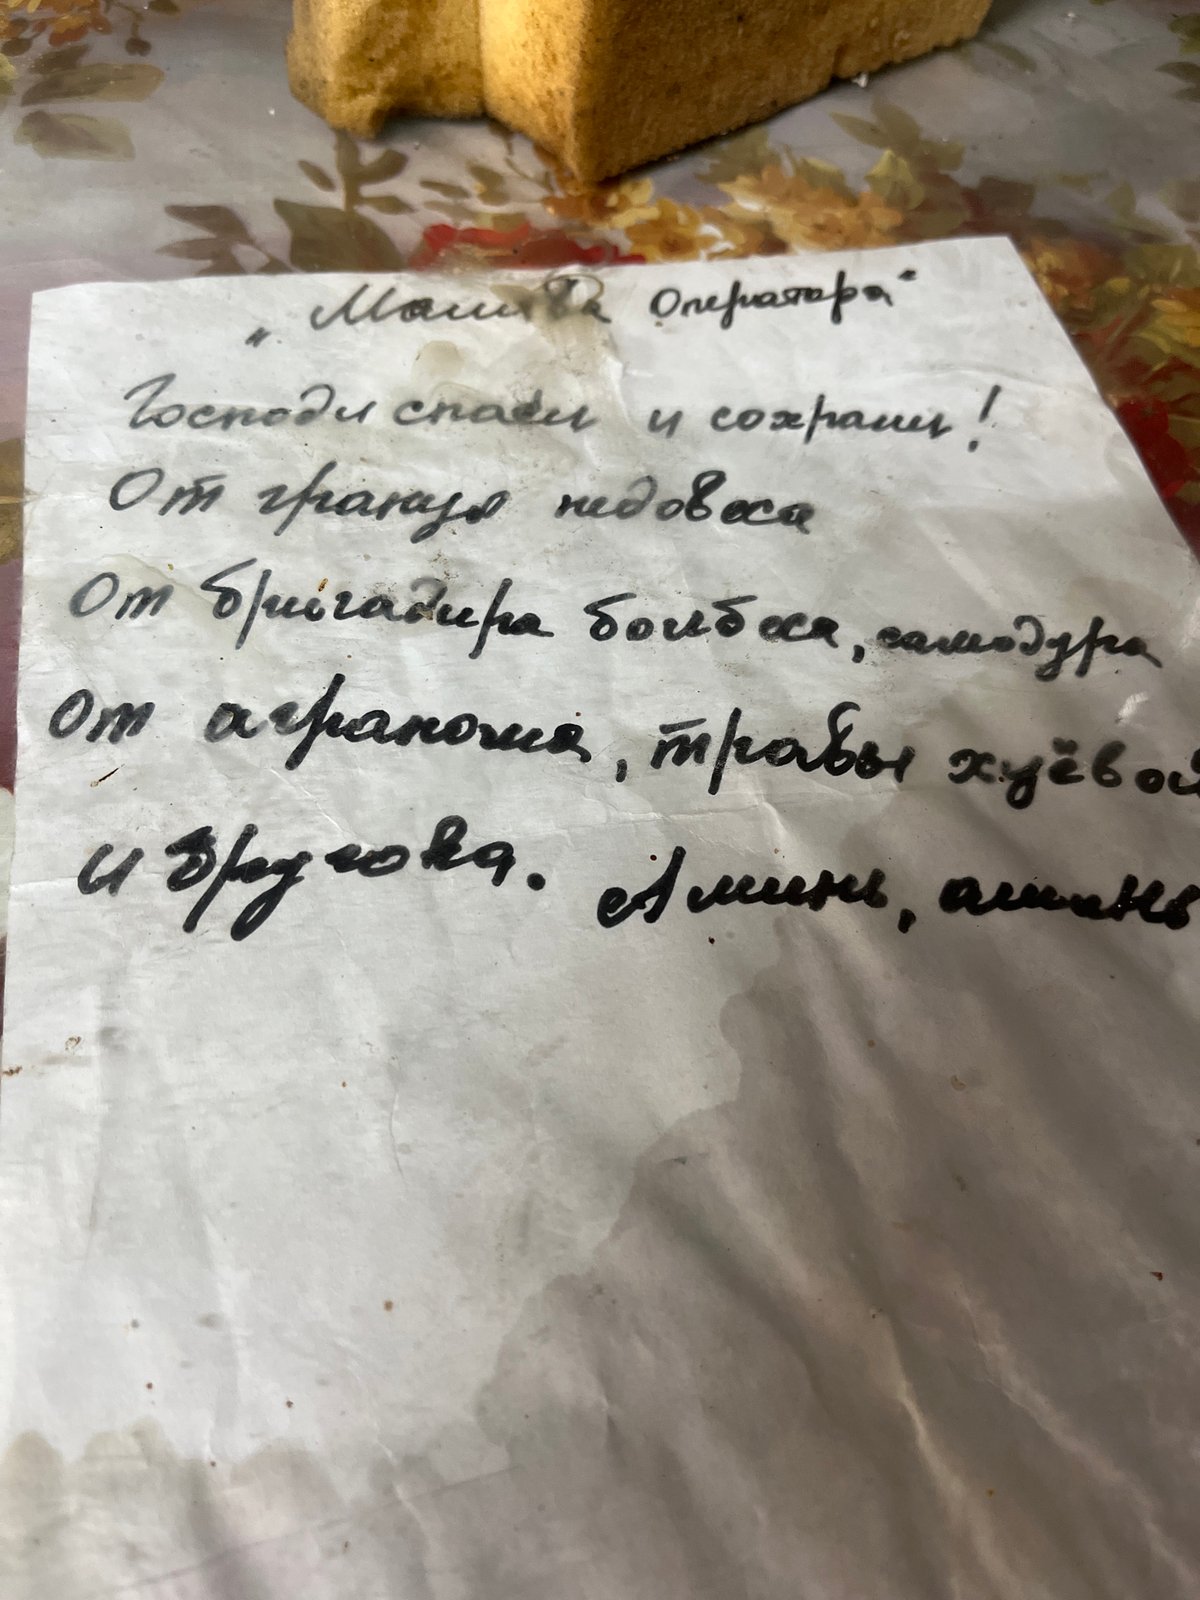 „Молитва Оператора"
Господи спаси и сохрани!
От гранул недовеса
От бригадира болбеса, самодура
От агранома, травы хуёвой
и Бругова. Аминь, аминь